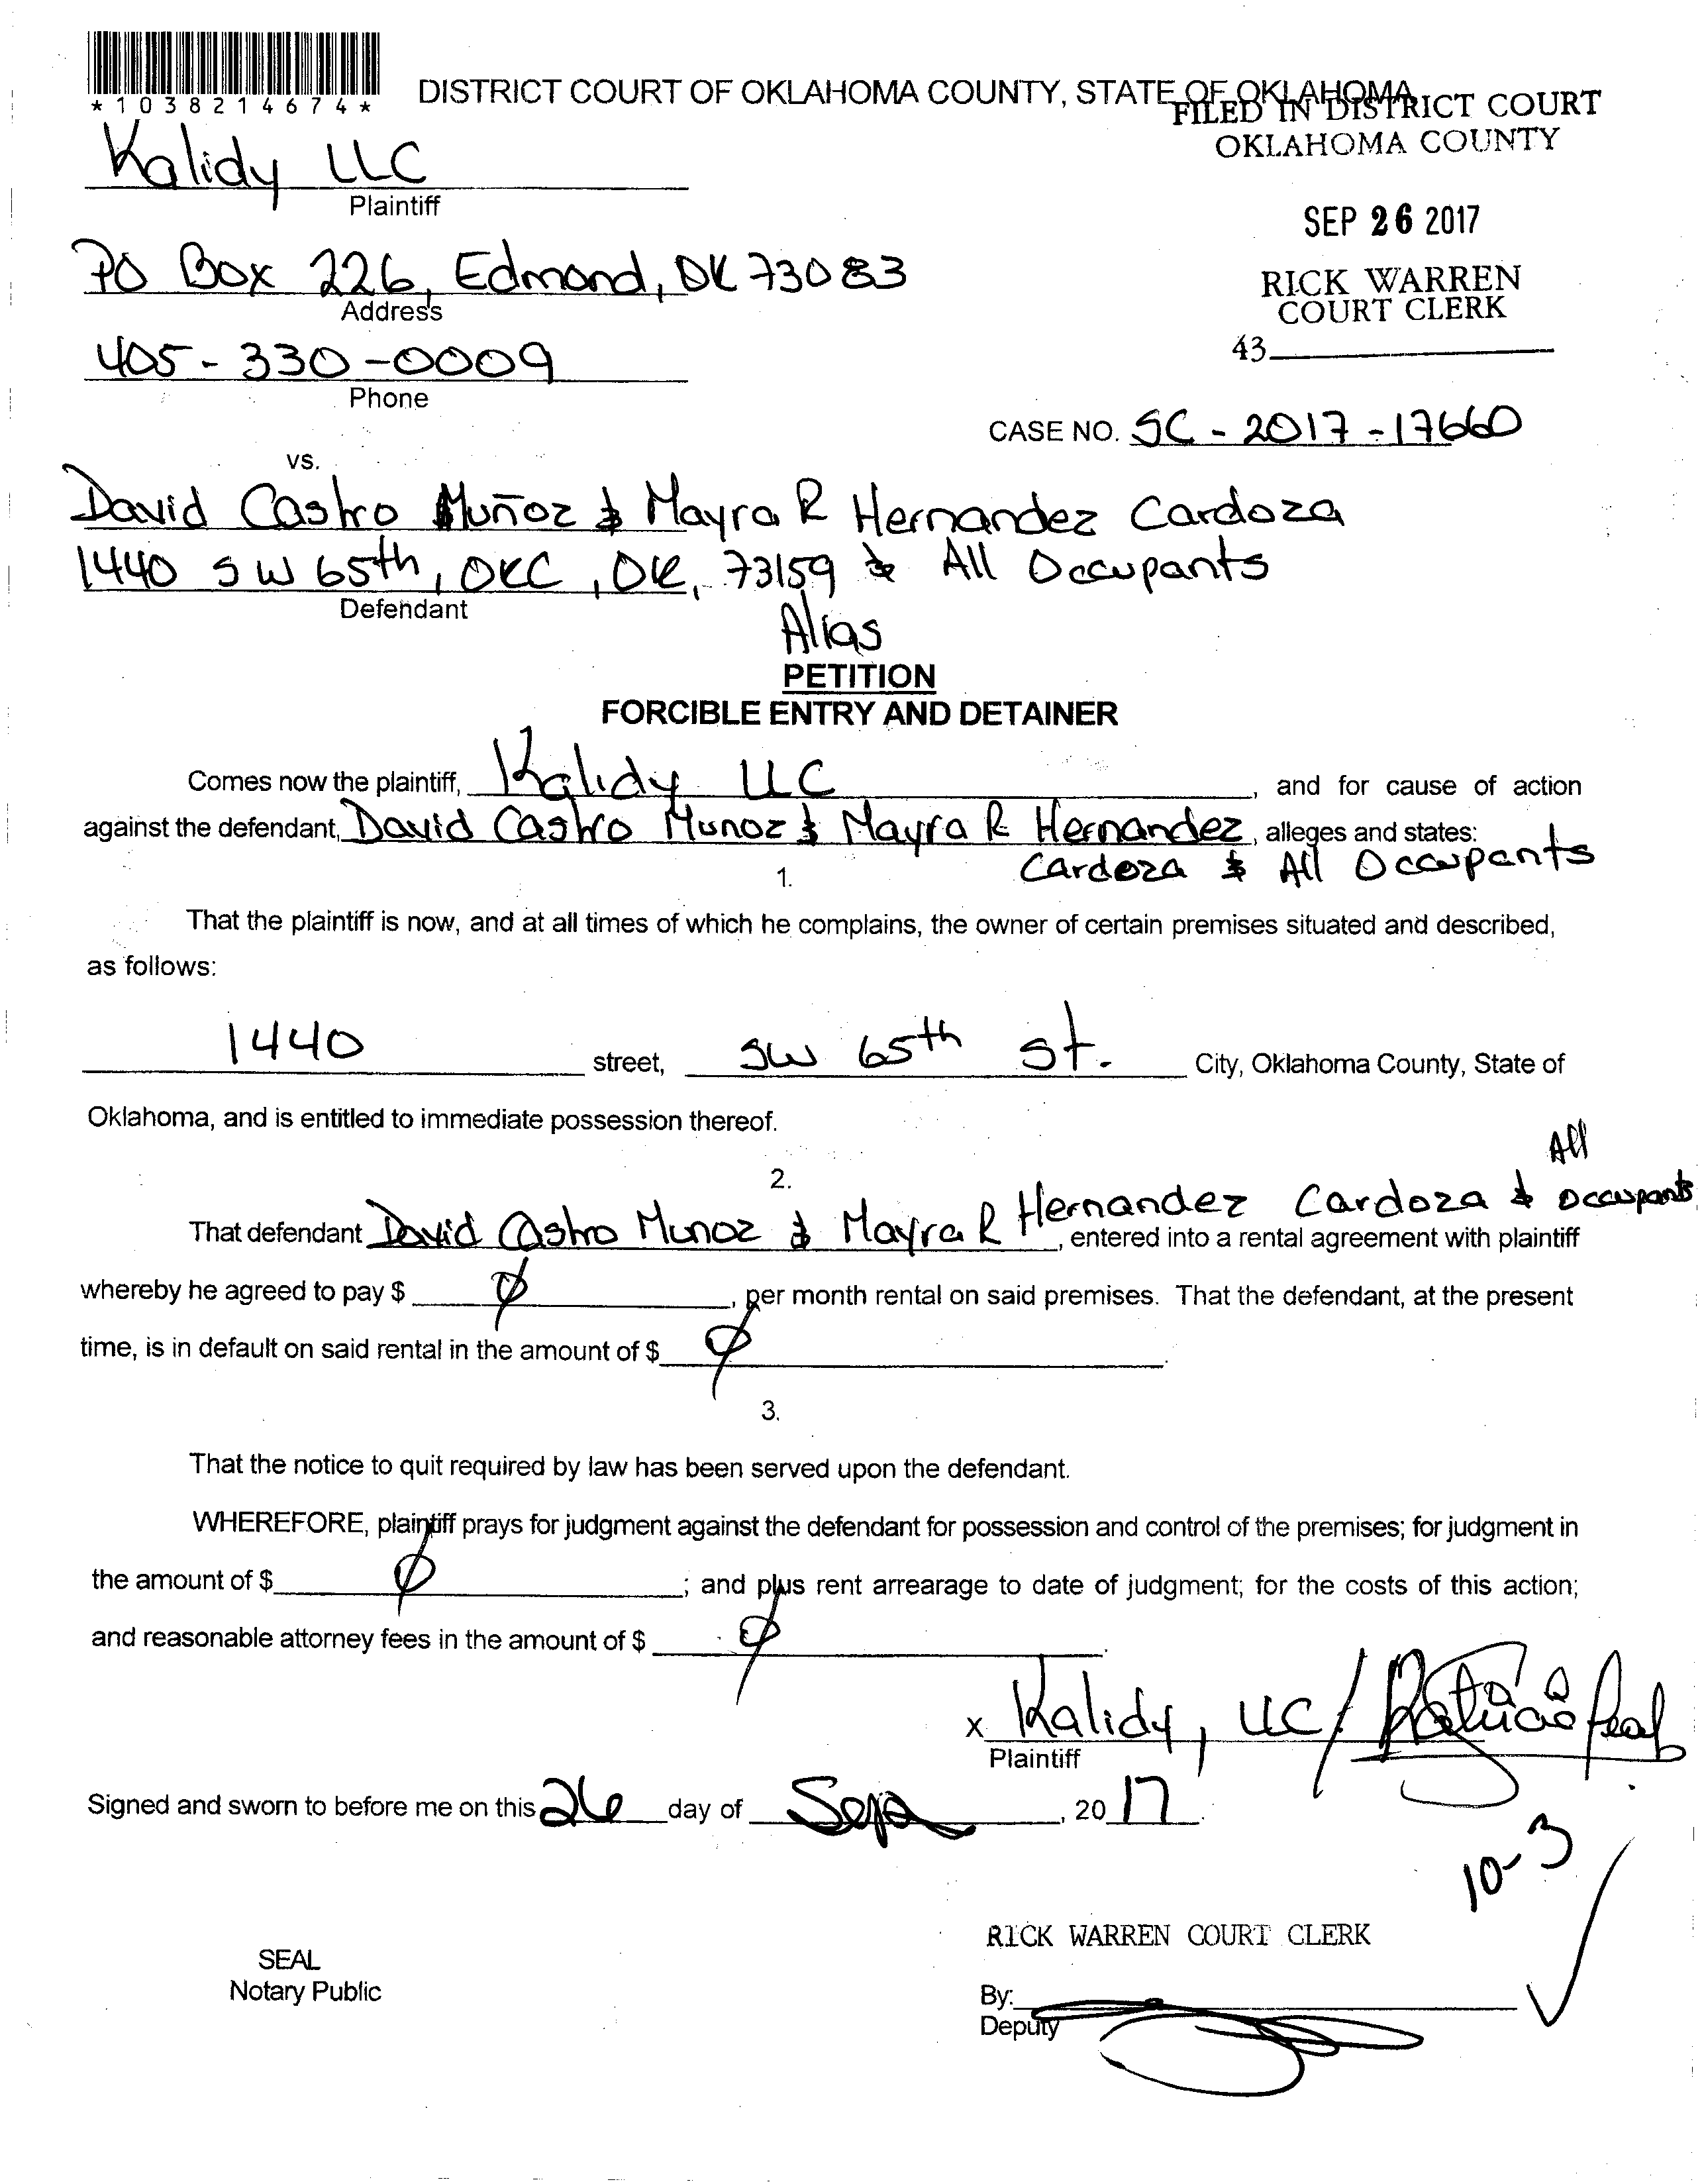 *1038214674*
DISTRICT COURT OF OKLAHOMA COUNTY, STATE OF OKLAHOMA
FILED IN DISTRICT COURT
OKLAHOMA COUNTY
Kalidy LLC
Plaintiff
SEP 26 2017
PO Box 226, Edmond, OK 73083
Address
RICK WARREN
COURT CLERK
405-330-0009
Phone
43
CASE NO. SC-2017-17660
vs.
David Castro Muñoz & Mayra R Hernandez Cardoza
1440 SW 65th, OKC, OK, 73159 & All Occupants
Defendant
Alias
PETITION
FORCIBLE ENTRY AND DETAINER
Comes now the plaintiff, Kalidy LLC, and for cause of action
against the defendant, David Castro Munoz & Mayra R Hernandez, alleges and states:
Cardoza & All Occupants
1.
That the plaintiff is now, and at all times of which he complains, the owner of certain premises situated and described,
as follows:
1440 street, SW 65th St. City, Oklahoma County, State of
Oklahoma, and is entitled to immediate possession thereof.
2.
All
Hernandez Cardoza & Occupants
That defendant David Castro Munoz & Mayra R, entered into a rental agreement with plaintiff
whereby he agreed to pay $ Ø, per month rental on said premises. That the defendant, at the present
time, is in default on said rental in the amount of $ Ø.
3.
That the notice to quit required by law has been served upon the defendant.
WHEREFORE, plaintiff prays for judgment against the defendant for possession and control of the premises; for judgment in
the amount of $ Ø; and plus rent arrearage to date of judgment; for the costs of this action;
and reasonable attorney fees in the amount of $ Ø.
X Kalidy, LLC/
Plaintiff
Signed and sworn to before me on this 26 day of Sep, 2017.
10-3
RICK WARREN COURT CLERK
SEAL
Notary Public
By:
Deputy